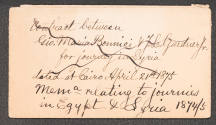 Contract between
Geo. Maria Bonnici & J. L. Gardner Jr.
for journey in Syria
dated at Cairo April 21st 1875
Mema relating to journies
in Egypt & Syria 1874/5